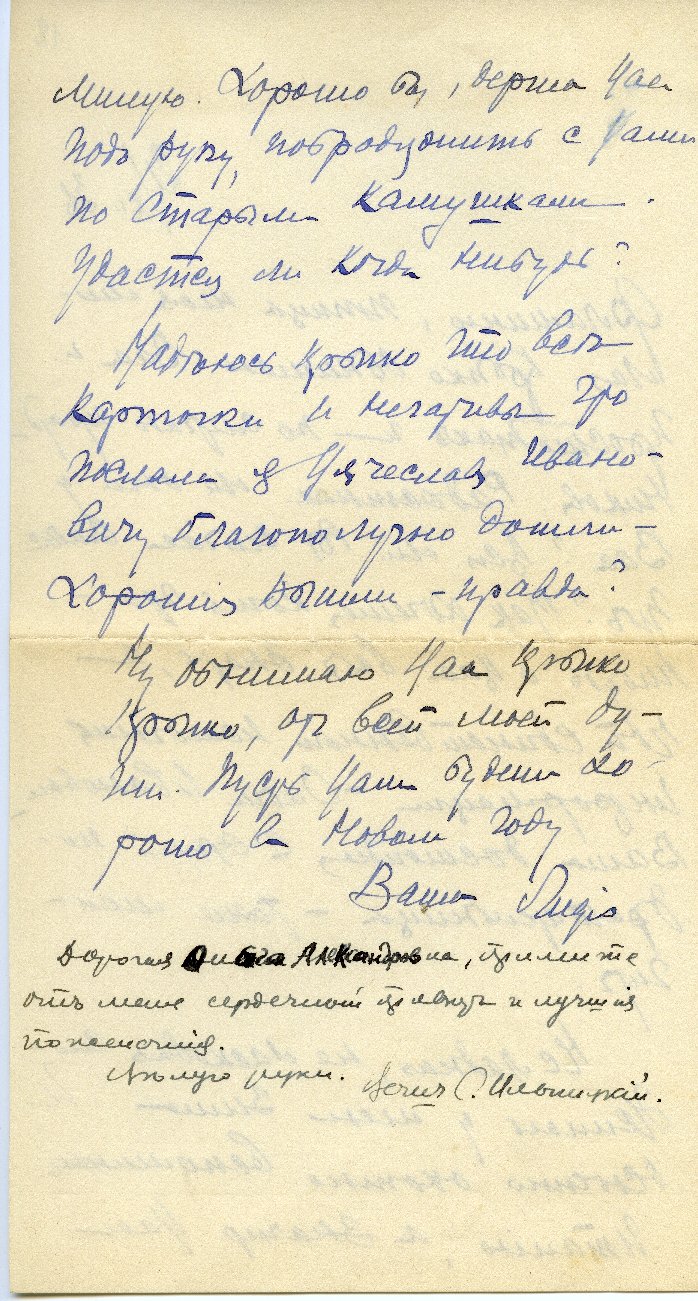 милую. Хорошо бы, держа Вас
подъ руку, побродяжить с Вами
по старымъ камушкамъ.
Удастся ли когда нибудь?
Надѣюсь крѣпко что всѣ
карточки и негативы что
послала я Вячеславу Ивано-
вичу благополучно дошли –
Хорошія вышли – правда?
Ну обнимаю Васъ крѣпко
крѣпко, отъ всей моей ду-
ши. Пусть Вамъ будетъ хо-
рошо въ Новомъ Году
Ваша
Дорогая Ольга Александровна, примите
отъ меня сердечный привѣтъ и лучшія
пожеланія.
Цѣлую руки.